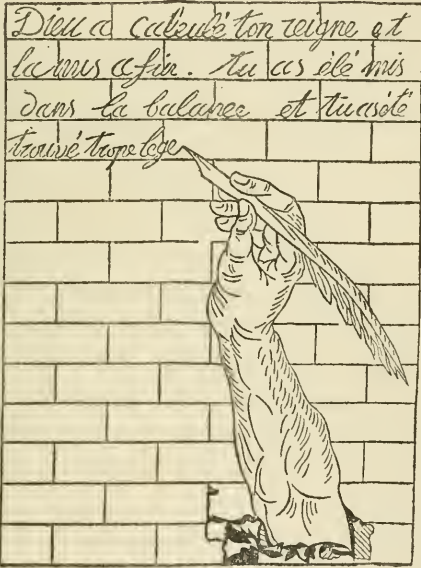 Dieu a calculé ton reigne et
la mis a fin. tu as élé mis
dans la balance et tu as été
trouvé trope lége